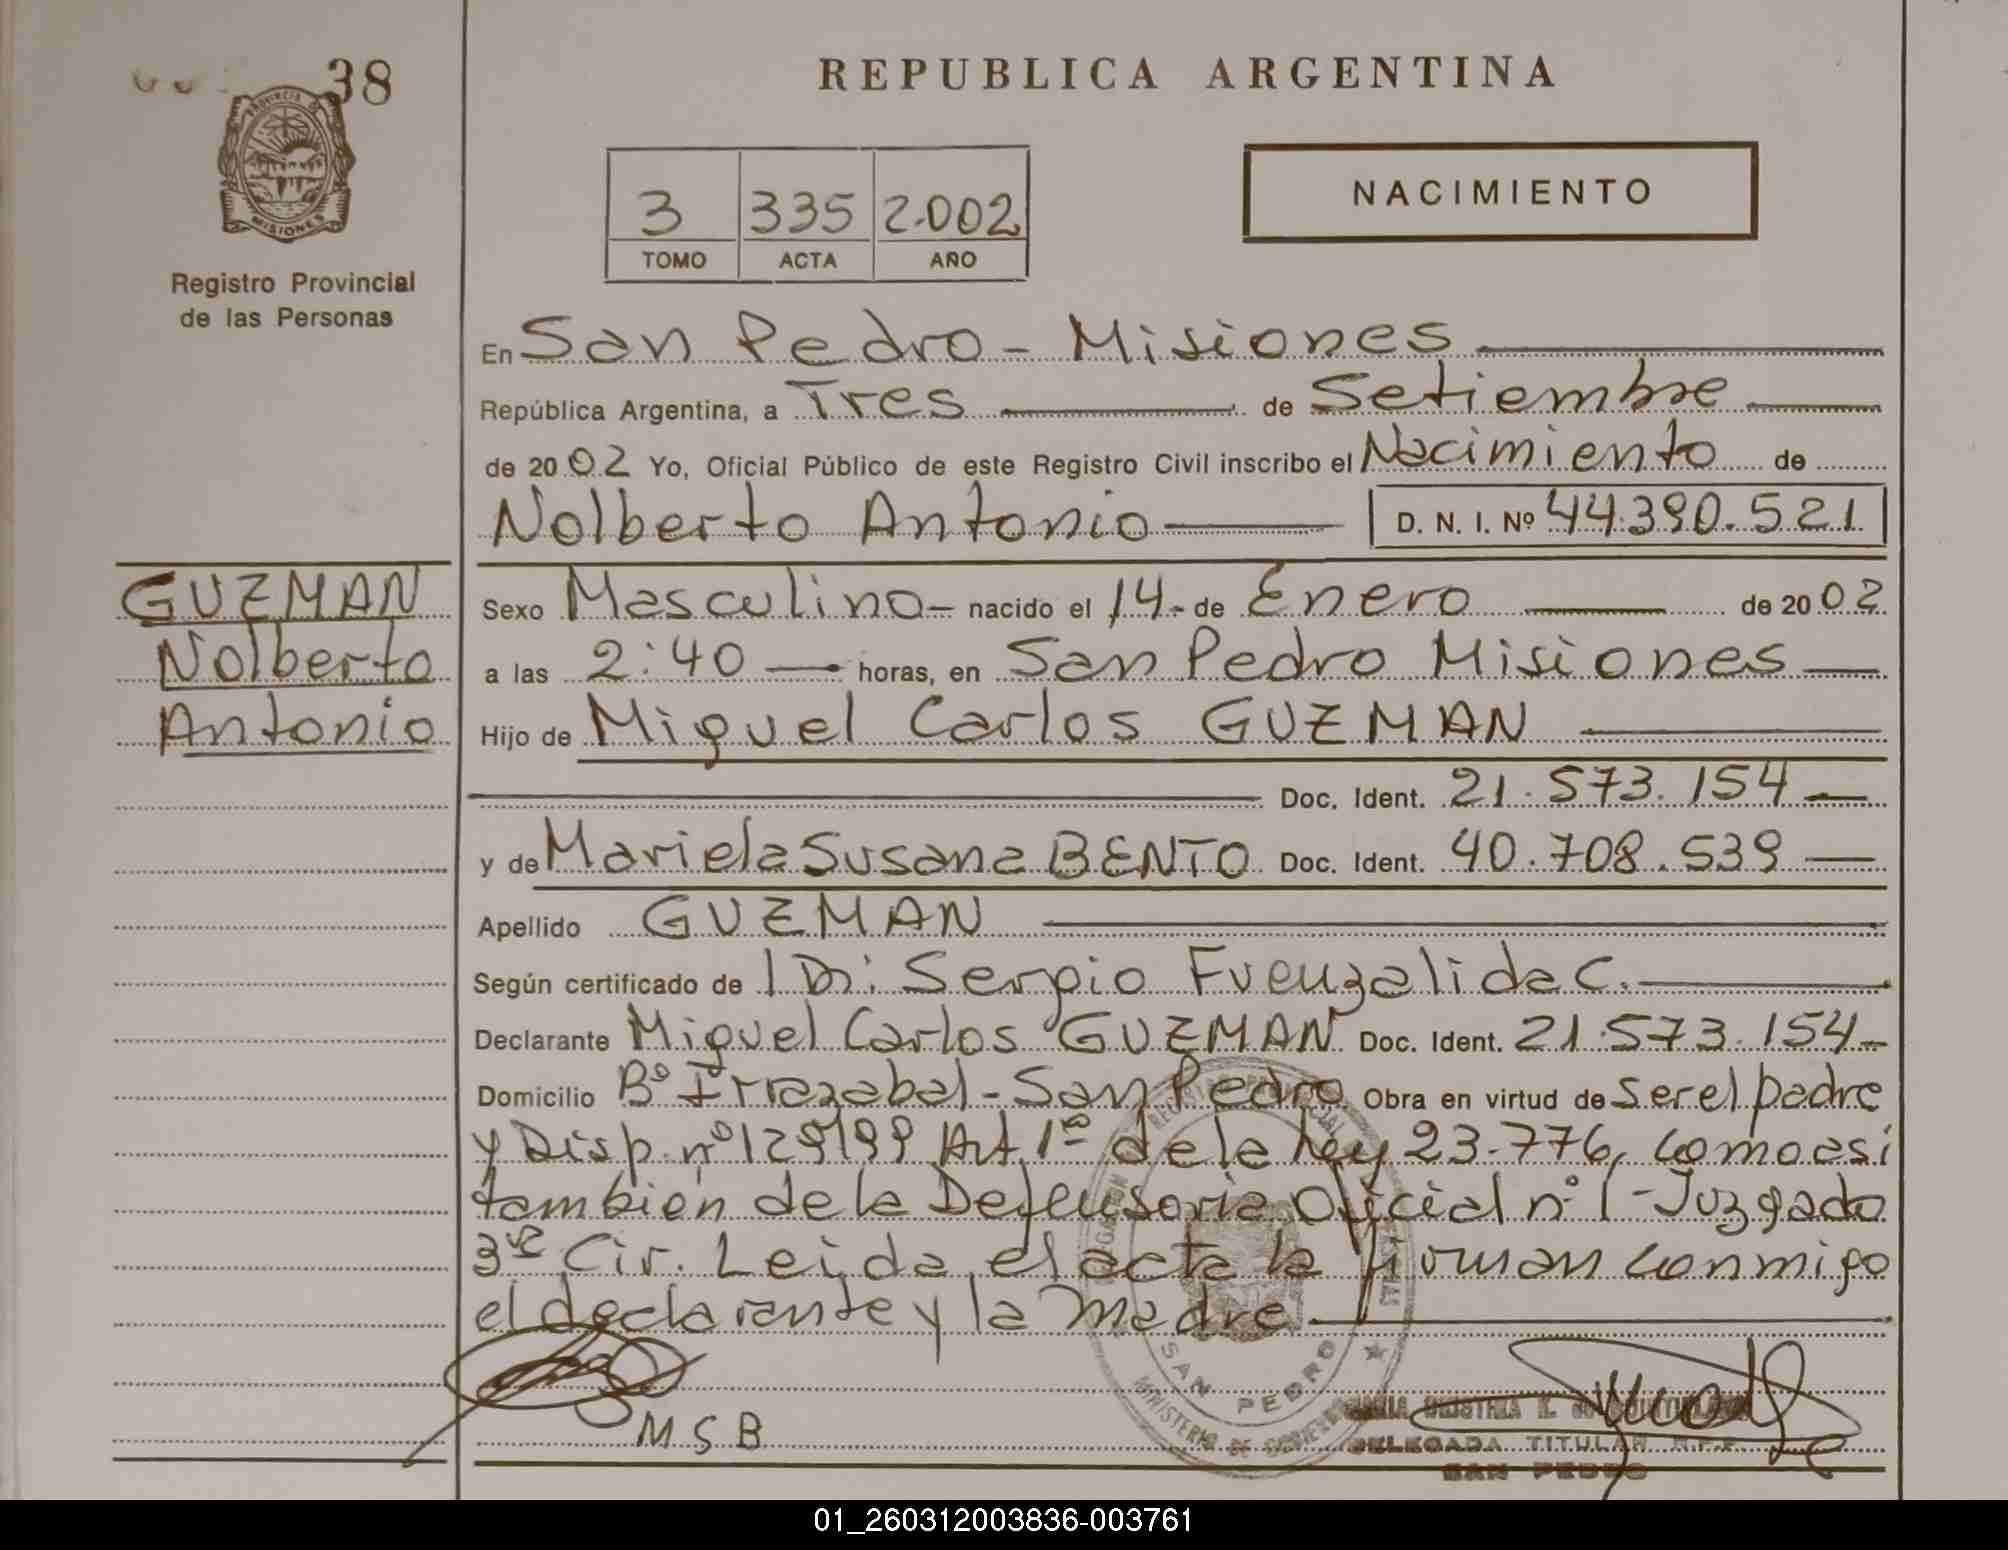 38
PROVINCIA DE
MISIONES
Registro Provincial
de las Personas
GUZMAN
Nolberto
Antonio
REPUBLICA ARGENTINA
3 335 2.002
TOMO ACTA AÑO
NACIMIENTO
En San Pedro - Misiones
República Argentina, a Tres de Setiembre
de 2002 Yo, Oficial Público de este Registro Civil inscribo el Nacimiento de
Nolberto Antonio D. N. I. Nº 44.390.521
Sexo Masculino nacido el 14 de Enero de 2002
a las 2:40 horas, en San Pedro Misiones
Hijo de Miguel Carlos GUZMAN
Doc. Ident. 21.573.154
y de Mariela Susana BENTO Doc. Ident. 40.708.539
Apellido GUZMAN
Según certificado de Dr. Sergio Fuenzalida C.
Declarante Miguel Carlos GUZMAN Doc. Ident. 21.573.154
Domicilio Bº Irrazabal - San Pedro Obra en virtud de ser el padre
y Disp. nº 129/99 Art 1º de la ley 23.776, como asi
tambien de la Defensoria Oficial nº 1 - Juzgado
3ra Cir. Leida el acta la firman conmigo
el declarante y la madre
M S B
SAN PEDRO
MINISTERIO DE GOBIERNO
DELEGADA TITULAR R.P.P.
SAN PEDRO
01_260312003836-003761